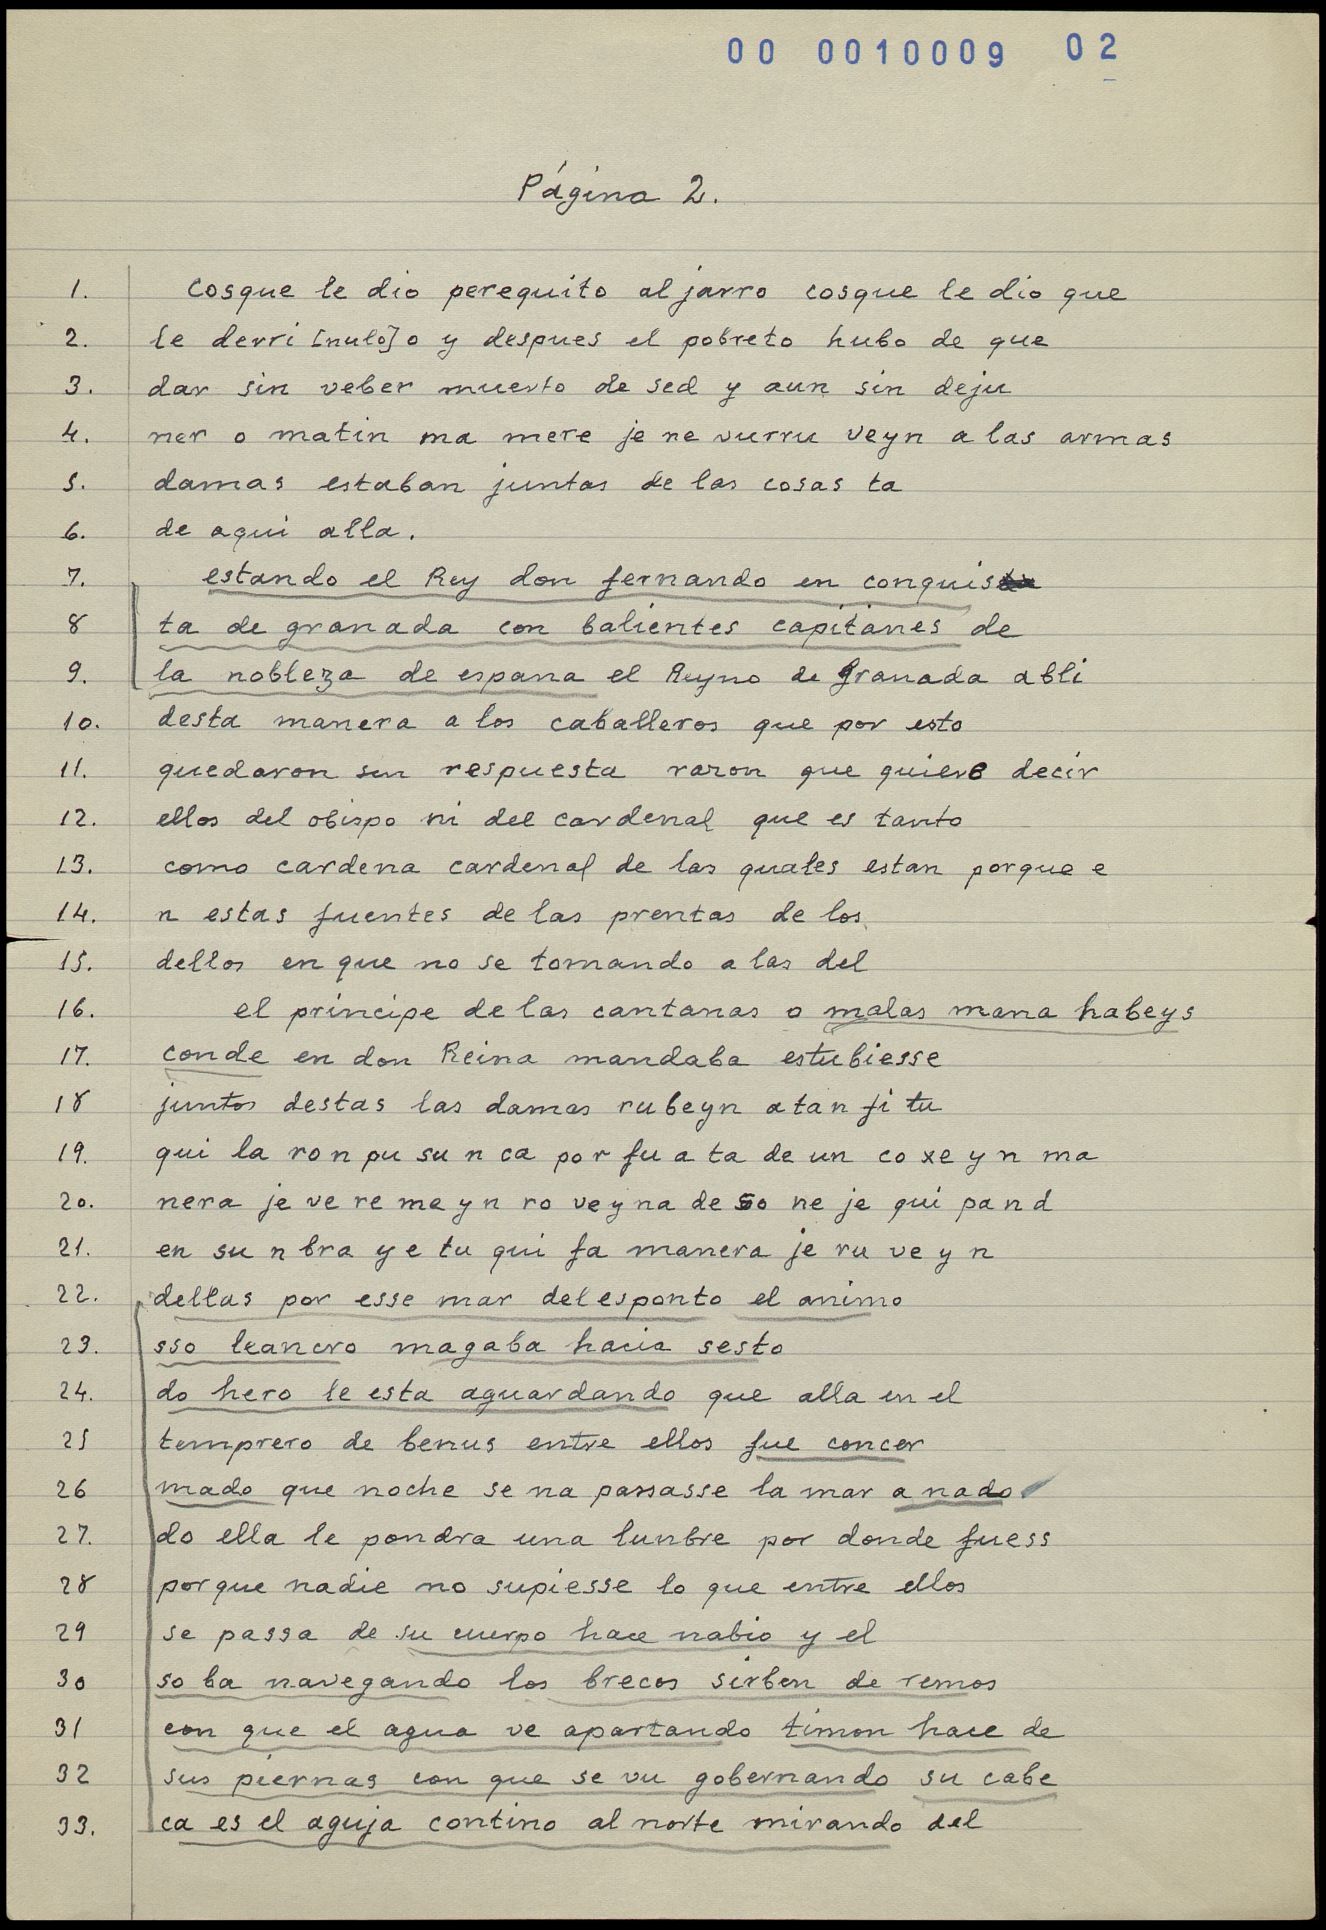 00 0010009 02
Página 2.
1. cosque le dio perequito al jarro cosque le dio que
2. le derri [nulo] o y despues el pobreto hubo de que
3. dar sin veber muerto de sed y aun sin deju
4. ner o matin ma mere je ne vurru veyn a las armas
5. damas estaban juntas de las cosas ta
6. de aqui alla.
7. estando el Rey don fernando en conquis
8 ta de granada con balientes capitanes de
9. la nobleza de espana el Reyno de granada abli
10. desta manera a los caballeros que por esto
11. quedaron sin respuesta razon que quiere decir
12. ellos del obispo ni del cardenal que es tanto
13. como cardena cardenal de las quales estan porque e
14. n estas fuentes de las prentas de los
15. dellos en que no se tomando a las del
16. el principe de las cantanas o malas mana habeys
17. conde en don Reina mandaba estubiesse
18 juntos destas las damas rubeyn a tan fi tu
19. qui la ro n pu su n ca por fu a ta de un co xe y n ma
20. nera je ve re me y n ro ve y na de so ne je qui pa n d
21. en su n bra y e tu qui fa manera je ru ve y n
22. dellas por esse mar delesponto el animo
23. sso leancro magaba hacia sesto
24. do hero le esta aguardando que alla en el
25 temprero de benus entre ellos fue concer
26 mado que noche se na passasse la mar a nado
27. do ella le pondra una lunbre por donde fuess
28 porque nadie no supiesse lo que entre ellos
29 se passa de su cuerpo hace nabio y el
30 so ba navegando los brecos sirben de remos
31 con que el agua ve apartando timon hace de
32 sus piernas con que se vu gobernando su cabe
33. ca es el aguja contino al norte mirando del